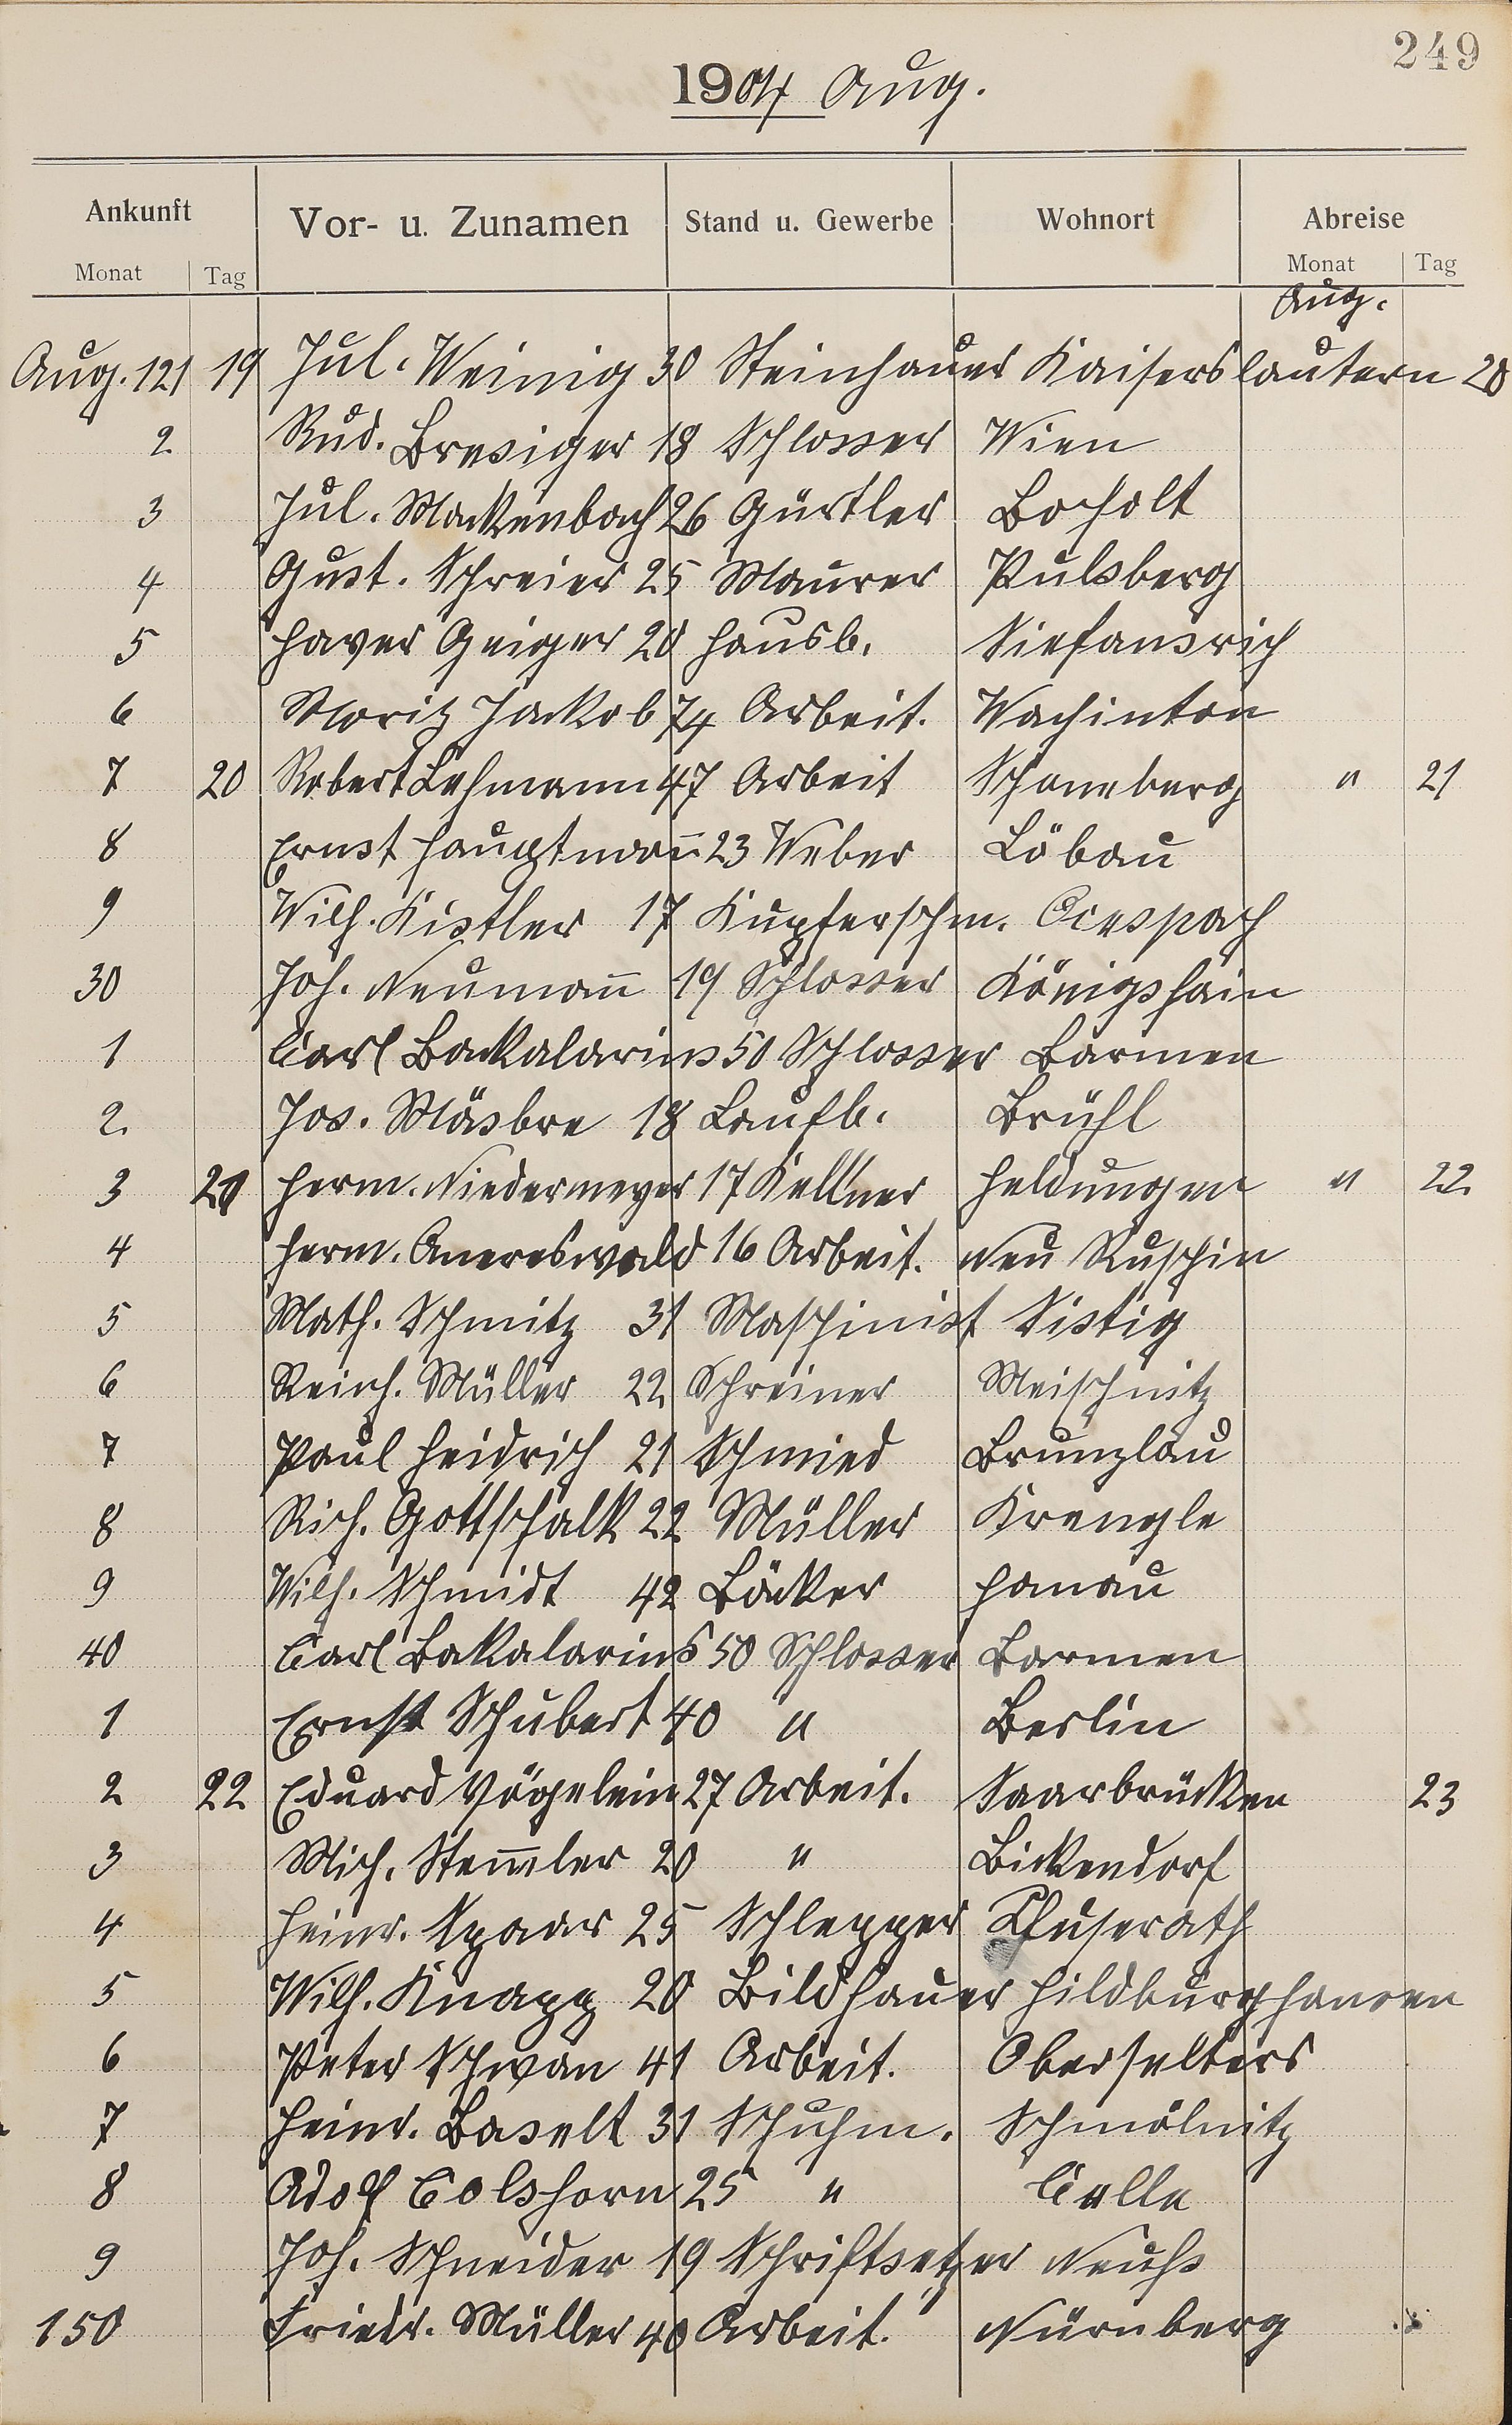 249
1904 Aug.
Ankunft Vor- u. Zunamen Stand u. Gewerbe Wohnort Abreise
Monat Tag Monat Tag
Aug.
Aug. 121 19 Jul. Weinig 30 Steinhauer Kaiserslautern 20
2 Rud. Bresiger 18 Schlosser Wien
3 Jul. Mackenbach 26 Gürtler Bocholt
4 Gust. Schreier 25 Maurer Pulsberg
5 Haver Geiger 20 Hausb. Siefansrich
6 Moriz Jackob 74 Arbeit. Wachinton
7 20 Robert Lehmann 47 Arbeit Schoneberg " 21
8 Ernst Hauptmañ 23 Weber Löbau
9 Wilh. Kistler 17 Kupferschm.
30 Joh. Neumañ 19 Schlosser Königshain
1 Carl Backalarius 50 Schlosser Barmen
2. Jos. Mäsbre 18 Laufb. Brühl
3 21 Herm. Niedermeyer 17 Kellner Heldungen " 22
4 Herm. Anereswald 16 Arbeit. Neu Ruschin
5 Math. Schmitz 31 Maschinist Sistig
6 Reinh. Müller 22 Schreiner Meischnitz
7 Paul Heidrich 21 Schmied Brunzlau
8 Rich. Gottschalk 22 Müller Krengle
9 Wilh. Schmidt 42 Bäcker Hanau
40 Carl Bakalarius 50 Schlosser Barmen
1 Ernst Schubert 40 " Berlin
2 22 Eduard Vögelein 27 Arbeit. Saarbrücken 23
3 Mich. Stem̄ler 20 " Bickendorf
4 Heinr. Spaar 25 Schlepper
5 Wilh. Knapp 20 Bildhauer Hildburghausen
6 Peter Schwan 41 Arbeit. Oberselters
7 Heinr. Baselt 31 Schuhm. Schmölnitz
8 Adolf Colshorn 25 " Celle
9 Joh. Schneider 19 Schriftsetzer Neuhs
150 Friedr. Müller 40 Arbeit. Nürnberg